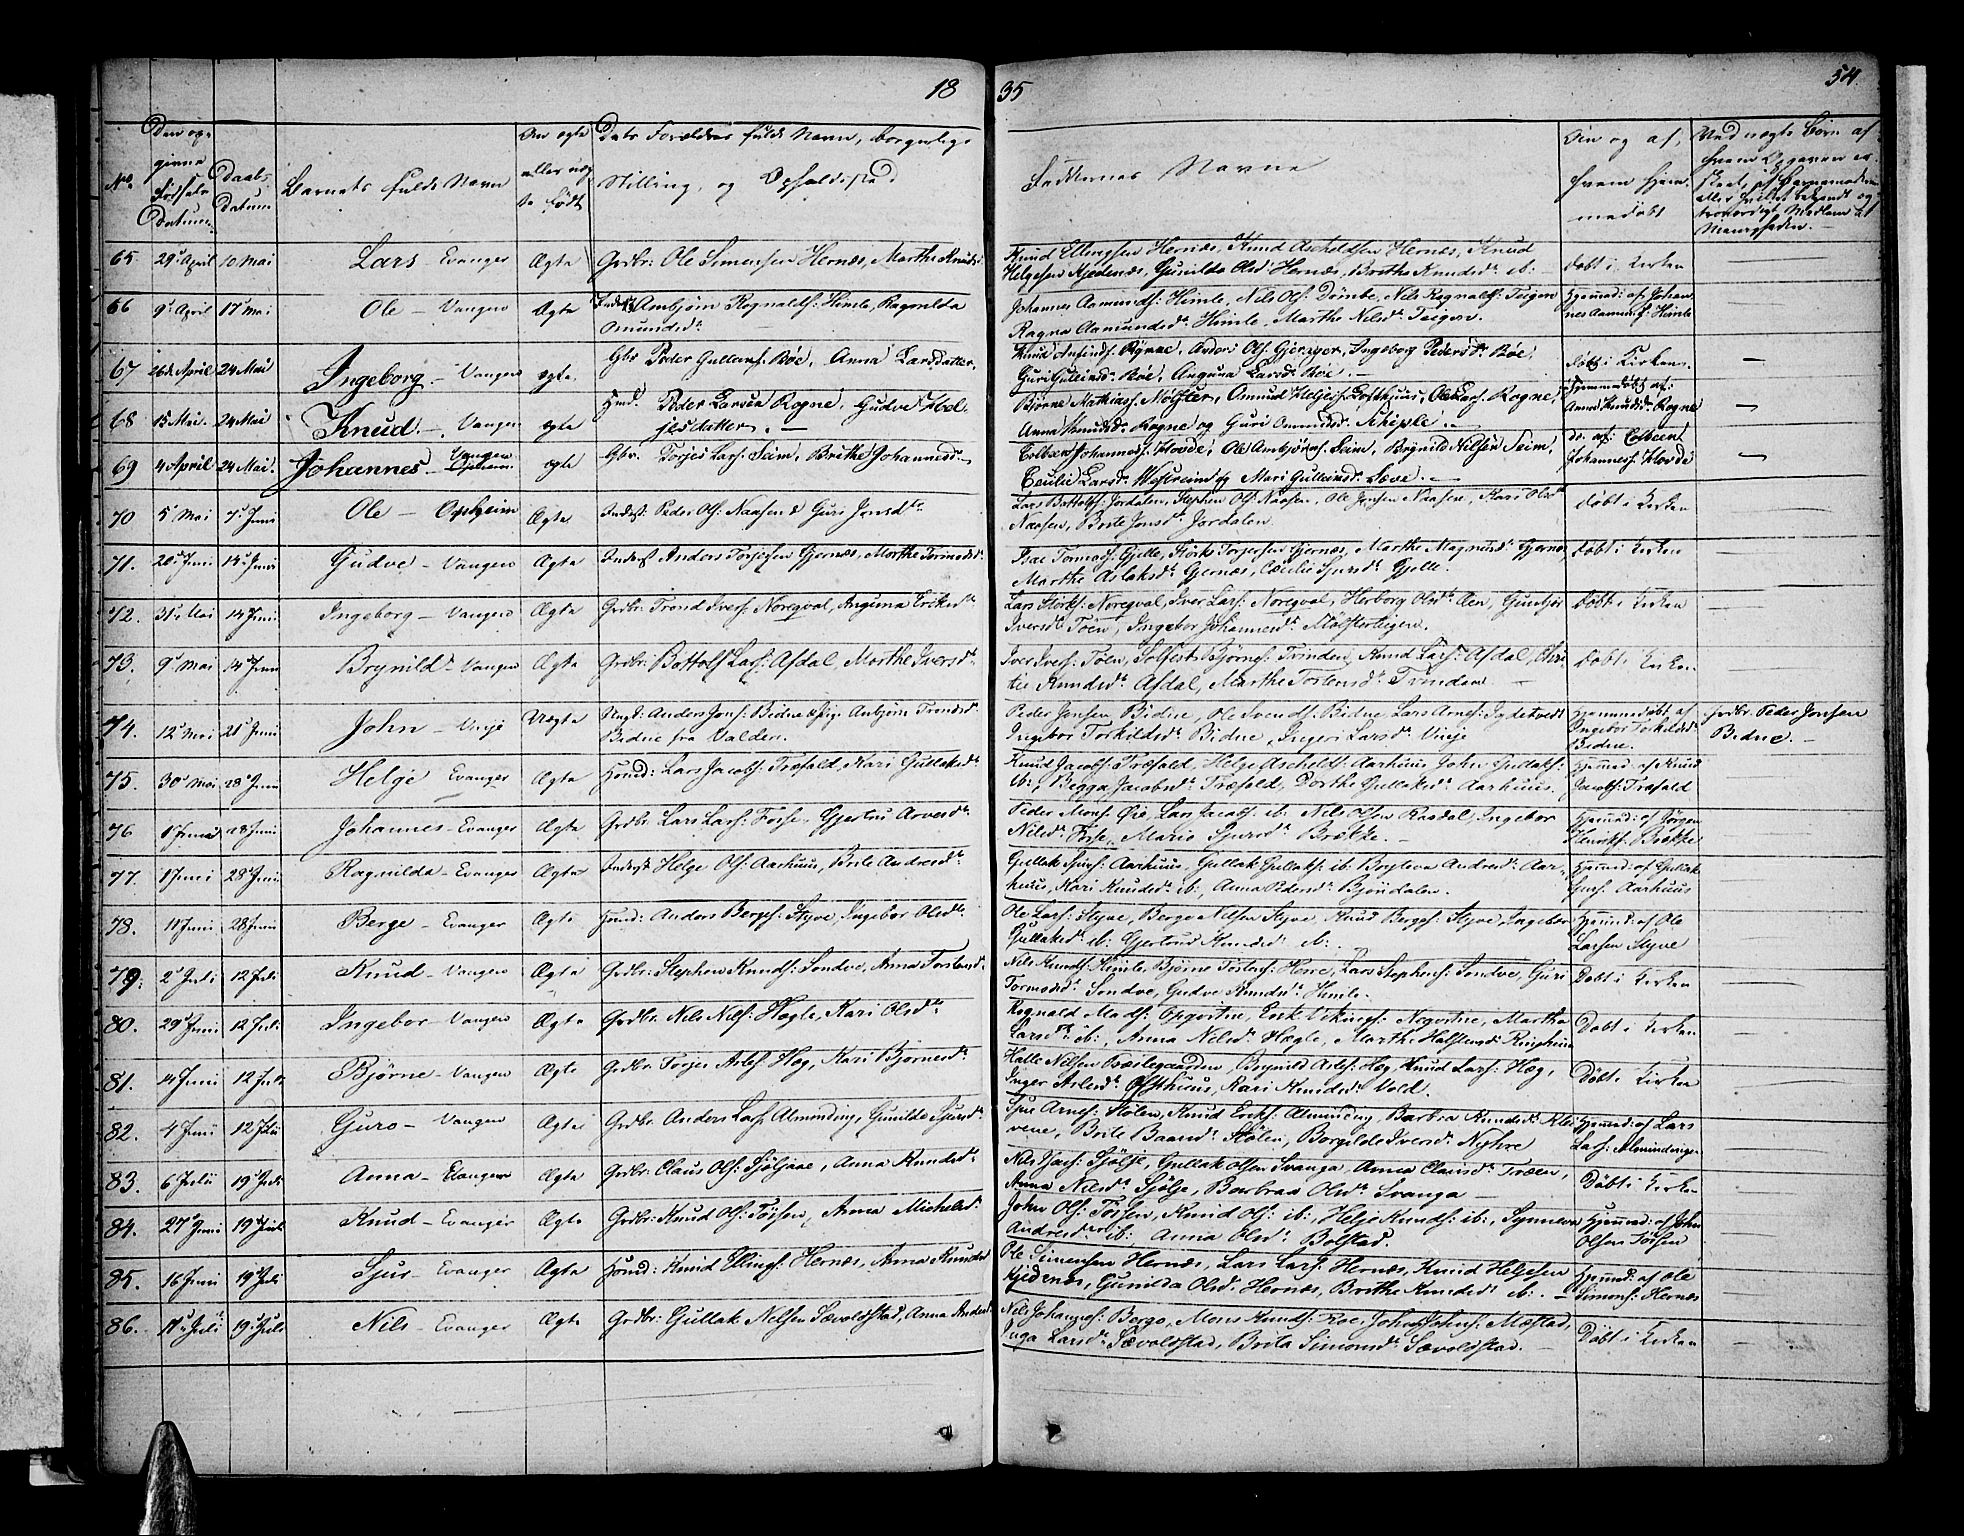 18 35 54.
No.
Den op-
givne
Fødsels
Datum.
Daabs
Datum
Barnets fulde Navn
Om ægte
eller uæg
te Født
Dets Forældres fulde Navn, borgerlige
Stilling, og Opholdssted
Faddernes Navne
hvem hjem-
medøbt
65 29 April 10 Mai Lars - Evanger Ægte Grdbr: Ole Simensen Hernæs, Marthe Knudsd
Knud Ellingsen Hernæs, Knud Hernæs, Knud
Helgesen Kjedenæs, Gunilda Olsdr Hernæs, Brithe Knudsdr ib: døbt i Kirken
66 9 April 17 Mai Ole - Vangen Ægte Ambjørn Rognaldsf: Himle, Ragnilda
Omundsdr
Johannes Aamundsf: Himle, Nils Olsf: Dømbe, Nils Rognaldsf: Teigen
Ragna Aamundsdr Himle, Marthe Nilsdr Teigen. Hjemmd: af Johan-
nes Aamundsf: Himle
67 26 April 24 Mai Ingeborg - Vangen ægte Gbr Peder Gulleinsf: Bøe, Anna Larsdatter,
Knud Rynne, Anders Olsf: Gjerager, Ingeborg Pedersdr Bøe,
Guri Gulleinsdr Bøe, Anguna Larsdr Bøe. - døbt i Kirken -
68 15 Mai. 24 Mai Knud - Vangen ægte Hmd. Peder Larsen Rogne, Gudve Hel-
jesdatter. -
Bjørne Mathiasf. Mølster, Omund Helgesf. Lofthuus, Ole Larsf. Rogne,
Anna Knudsdr Rogne og Guri Omundsdr Schiple. - Hjemmedøbt af:
Anna Knudsdr Rogne -
69 4 April 24 Mai. Johannes - Vangen ægte Gbr. Torjes Larsf. Seim, Brithe Johannesdr -
Colbeen Johannesf. Hovde, Ole Ambjørnsf. Seim, Brynild Nilsen Seim,
Cecilie Larsdr Westreim og Mari Gulleinsdr Sæve. - do. af: Colbeen
Johannesf. Hovde -
70 5 Mai 7 Juni Ole - Opheim Ægte Inderst: Peder Olsf: Naasen & Guri Jonsdtr
Lars Bottolfsf: Jordalen, Stephen Olsf: Naasen, Ole Jonsen Naasen, Kari Olsdr
Naasen, Brite Jonsdr Jordalen. døbt i Kirken
71. 14 Juni Gudve - Vangen Ægte Inderst Anders Torjesen Gjernæs, Marthe Tormodsdr
Isac Tormodsf: Gjelle, Størk Torjersen Gjernæs, Marthe Magnusdr Gjernæs,
Marthe Aslaksdr Gjernæs, Cæcilie Sjursdr Gjelle. døbt i Kirken
72. 31 Mai 14 Juni Ingeborg - Vangen Ægte Grdbr: Trond Iversf: Norqval, Anguna Eriksdr
Lars Størksf: Norqval, Iver Larsf: Norqval, Herborg Olsdr Øen, Gunbjør
Iversdr Tøen, Ingebor Johannesdr Mølsterteigen. døbt i Kirken
73. 9 Mai 14 Juni Brynild - Vangen Ægte Grdbr: Bottolf Larsf: Afdal, Marthe Iversdr
Iver Iversf: Tøen, Solfest Bjørnesf: Trinden, Knud Larsf: Afdal, Chri-
tie Knudsdr Afdal, Marthe Torstensdr Trinden - Døbt i Kirken
74. 12 Mai 21 Juni John - Vinje Uægte Ungk: Anders Jonsf: Bidne & Pige Anbjørn Trondsdr
Bidne fra Valders.
Peder Jonsen Bidne, Ole Svendsf: Bidne, Lars Arnesf:
Ingebor Torkildsdr Bidne, Ingeri Larsdr Vinje Hjemmedøbt af
Ingebor Torkildsdr
Bidne. Grdbr. Peder Jonsen
Bidne. -
75. 30 Mai 28 Juni Helge Evanger Ægte Husmd: Lars Jacobsf: Træfald, Kari Gullaksdr
Knud Jacobsf: Træfald, Helge Aarhuus, John Gullaksf:
ib:, Begga Jacobsdr Træfald, Dorthe Gullaksdr Aarhuus. Hjemmd: af Knud
Jacobsf: Træfald
76 1 Juni 28 Juni Johannes - Evanger Ægte Grdbr: Lars Larsf: Fosse - Gjertru Arvesdr
Peder Monsf: Øie, Lars Jacobsf: ib: Nils Olsen Rasdal, Ingebor
Nilsdr Fosse, Marie Sjursdr Brække. - Hjemmd: af Jørgen
Henriksf: Brække
77. 1 Juni 28 Juni Ragnilda - Evanger Ægte Inderst Helge Olsf: Aarhuus, Brite Andersdr
Gullak Sjursf: Aarhuus, Gullak Gullaksf: ib: Andersdr Aar-
huus, Kari Knudsdr ib:, Anna Pedersdr Bjøndalen. Hjemmd: af Gullak
Aarhuus
78. 11 Juni 28 Juni Berge - Evanger Ægte Husmd: Anders Bergesf: Styve, Ingebor Olsdr
Ole Larsf: Styve, Berge Nilsen Styve, Knud Bergesf: Styve, Ingebor
Gullaksdr ib: Gjertrud Knudsdr ib: Hjemmd: af Ole
Larsen Styve
79. 2 Juli 12 Juli Knud - Vangen Ægte Grdbr: Stephen Knudsf: Sondve, Anna Torstensdr
Nils Knudsf: Himle, Bjørne Torstensf: Herre, Lars Stephensf: Sondve, Guri
Tormodsdr Sondve, Gudve Knudsdr Himle. Døbt i Kirken
80. 29 Juni 12 Juli Ingebor - Vangen Ægte Grdbr: Nils Nilsf: Hægle, Kari Olsdr
Rognald Madsf: Opgvitne, Erik Vikingsf: Nægvitne, Martha
Larsdr ib:, Anna Nilsdr Hægle, Marthe Halstensdr Ringheim Døbt i Kirken
81. 14 Juni 12 Juli Bjørne - Vangen Ægte Grdbr: Torjes Arlesf: Høg, Kari Bjørnesdr
Halle Nilsen Præstegaarden, Brynild Arlesf: Høg, Knud Larsf: Hæg,
Inger Arlesdr Ofsthuus, Kari Knudsdr Vold. Døbt i Kirken
82. 4 Juni 12 Juli Guro - Vangen Ægte Grdbr: Anders Larsf. Alminding, Gunilda Sjursdr
Sjur Arnesf: Stølen, Knud Eriksf: Alminding, Barbra Knudsdr Kle-
vene, Brite Baarsdr Stølen, Borgilde Iversdr Nyhre Hjemmd: af Lars
Larsf: Almindingen
83. 6 Juli 19 Juli Anna - Evanger Ægte Grdbr: Claus Olsf: Sjøljaae, Anna Knudsdr
Nils Sjølje, Gullak Olsen Svanga, Anna Clausdr Træen,
Anna Nilsdr Sjølje, Barbraa Olsdr Svanga - Døbt i Kirken
84. 27 Juni 19 Juli Knud - Evanger Ægte Grdbr: Knud Olsf: Tøssen, Anna Michelsdr
John Olsf: Tøssen, Knud Olsf: ib:, Helje Knudsf: ib:, Synneva
Andersdr ib:, Anna Olsdr Bolstad. Hjemmd: af John
Olsen Tøssen
85. 16 Juni 19 Juli Sjur - Evanger Ægte Husmd: Knud Ellingsf: Hernæs, Anna Knudsdr
Ole Simensen Hernæs, Lars Larsf: Hernæs, Knud Helgesen
Kjedenæs, Gunilda Olsdr Hernæs, Brithe Knudsdr ib: - Hjemmd: af Ole
Simonsf: Hernæs
86. 11 Juli 19 Juli Nils - Evanger Ægte Grdbr: Gullak Nilsen Sævoldstad, Anna Andersdr
Nils Johannesf: Berge, Mons Knudsf: Roe, Johnsf: Mæstad,
Inga Larsdr Sævoldstad, Brita Simonsdr Sævoldstad. - Døbt i Kirken